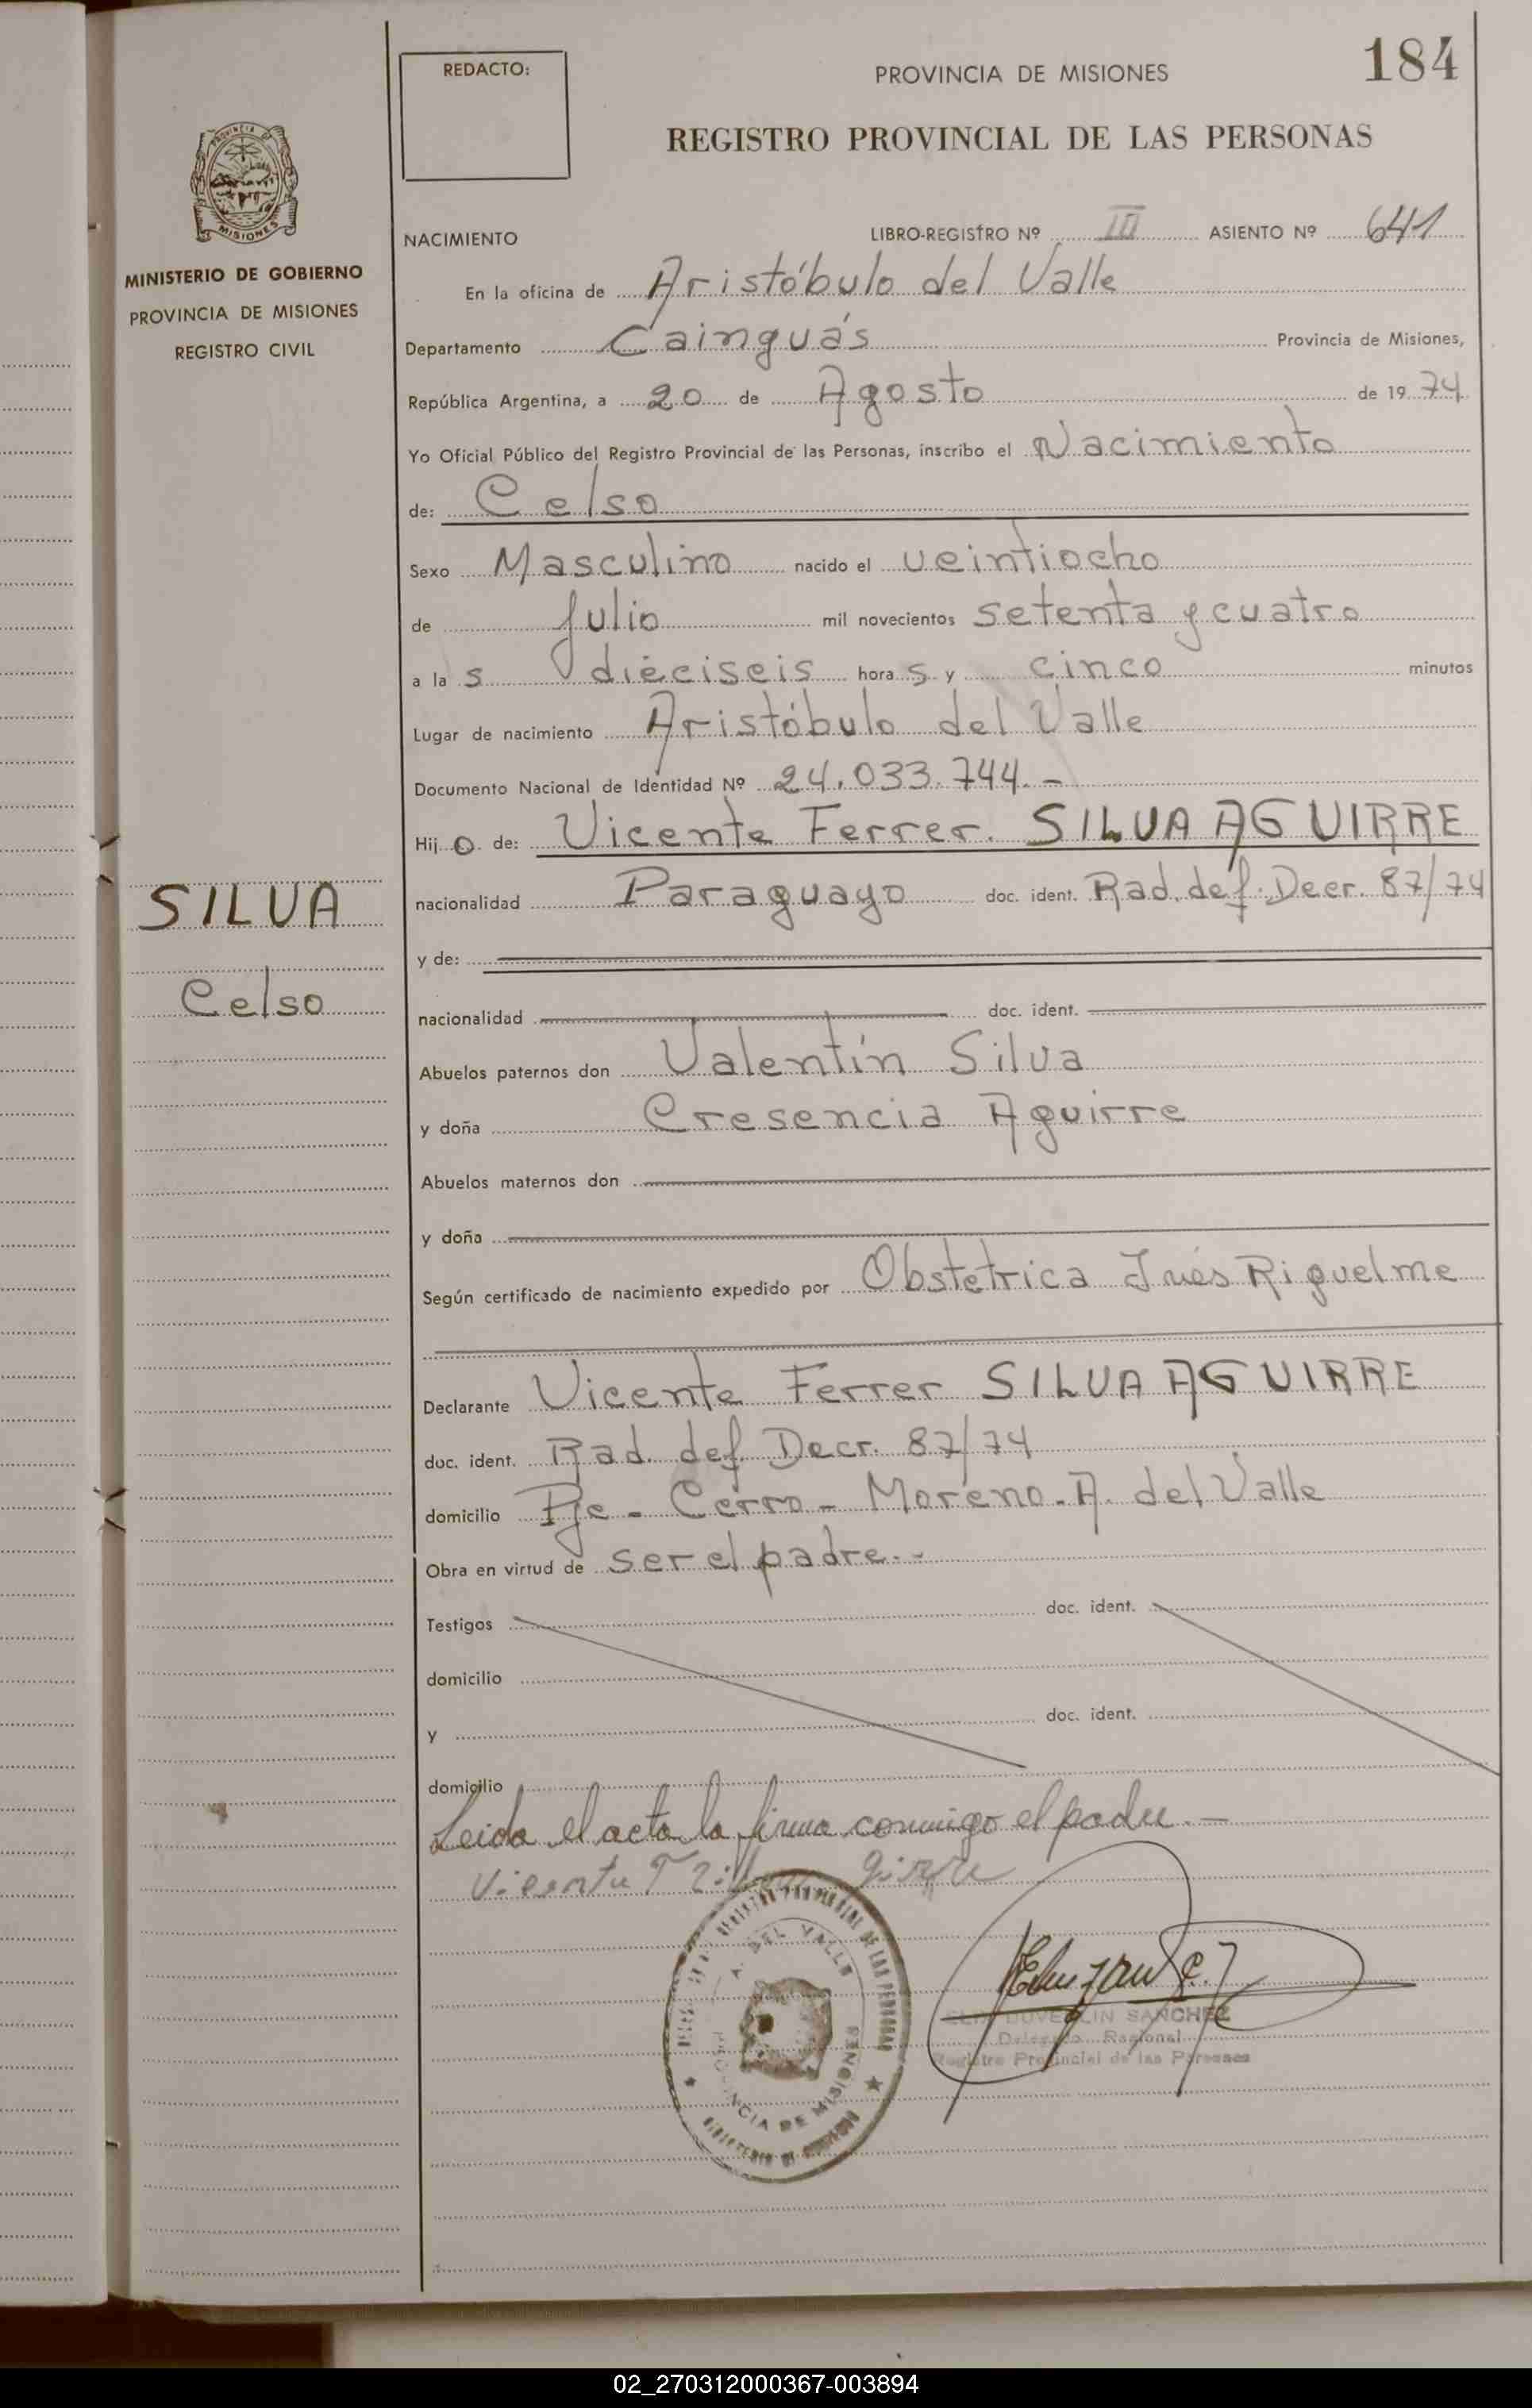 REDACTO:
PROVINCIA DE MISIONES
184
REGISTRO PROVINCIAL DE LAS PERSONAS
PROVINCIA DE
MISIONES
MINISTERIO DE GOBIERNO
PROVINCIA DE MISIONES
REGISTRO CIVIL
NACIMIENTO LIBRO-REGISTRO Nº III ASIENTO Nº 641
En la oficina de Aristóbulo del Valle
Departamento Cainguás Provincia de Misiones,
República Argentina, a 20 de Agosto de 1974
Yo Oficial Público del Registro Provincial de las Personas, inscribo el Nacimiento
de: Celso
Sexo Masculino nacido el veintiocho
de Julio mil novecientos setenta y cuatro
a la s dieciseis hora s y cinco minutos
Lugar de nacimiento Aristóbulo del Valle
Documento Nacional de Identidad Nº 24.033.744.-
Hij o de: Vicente Ferrer. SILVA AGUIRRE
nacionalidad Paraguayo doc. ident. Rad. def. Decr. 87/74
SILVA
Celso
y de:
nacionalidad doc. ident.
Abuelos paternos don Valentín Silva
y doña Cresencia Aguirre
Abuelos maternos don
y doña
Según certificado de nacimiento expedido por Obstetrica Inés Riquelme
Declarante Vicente Ferrer SILVA AGUIRRE
doc. ident. Rad. def. Decr. 87/74
domicilio Pje - Cerro - Moreno - A. del Valle
Obra en virtud de ser el padre.-
Testigos doc. ident.
domicilio
y doc. ident.
domicilio
Leida el acta la firma conmigo el padre.-
Vicente
REGISTRO PROVINCIAL DE LAS PERSONAS
A. DEL VALLE
PROVINCIA DE MISIONES
MINISTERIO DE GOBIERNO
SANCHEZ
Delegado Regional
Registro Provincial de las Personas
02_270312000367-003894